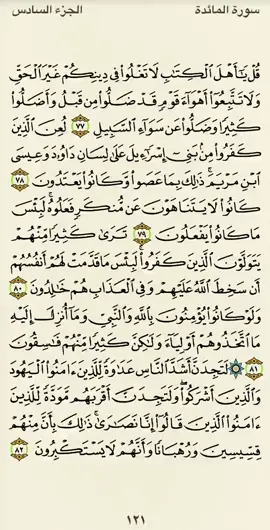 سورة المائدة الجزء السادس
قُلْ يَٰٓأَهْلَ ٱلْكِتَٰبِ لَا تَغْلُوا۟ فِى دِينِكُمْ غَيْرَ ٱلْحَقِّ
وَلَا تَتَّبِعُوٓا۟ أَهْوَآءَ قَوْمٍ قَدْ ضَلُّوا۟ مِن قَبْلُ وَأَضَلُّوا۟
كَثِيرًا وَضَلُّوا۟ عَن سَوَآءِ ٱلسَّبِيلِ ٧٧ لُعِنَ ٱلَّذِينَ
كَفَرُوا۟ مِنۢ بَنِىٓ إِسْرَٰٓءِيلَ عَلَىٰ لِسَانِ دَاوُۥدَ وَعِيسَى
ٱبْنِ مَرْيَمَ ۚ ذَٰلِكَ بِمَا عَصَوا۟ وَّكَانُوا۟ يَعْتَدُونَ ٧٨
كَانُوا۟ لَا يَتَنَاهَوْنَ عَن مُّنكَرٍ فَعَلُوهُ ۚ لَبِئْسَ
مَا كَانُوا۟ يَفْعَلُونَ ٧٩ تَرَىٰ كَثِيرًا مِّنْهُمْ
يَتَوَلَّوْنَ ٱلَّذِينَ كَفَرُوا۟ ۚ لَبِئْسَ مَا قَدَّمَتْ لَهُمْ أَنفُسُهُمْ
أَن سَخِطَ ٱللَّهُ عَلَيْهِمْ وَفِى ٱلْعَذَابِ هُمْ خَٰلِدُونَ ٨٠
وَلَوْ كَانُوا۟ يُؤْمِنُونَ بِٱللَّهِ وَٱلنَّبِىِّ وَمَآ أُنزِلَ إِلَيْهِ
مَا ٱتَّخَذُوهُمْ أَوْلِيَآءَ وَلَٰكِنَّ كَثِيرًا مِّنْهُمْ فَٰسِقُونَ
٨١ ۞ لَتَجِدَنَّ أَشَدَّ ٱلنَّاسِ عَدَٰوَةً لِّلَّذِينَ ءَامَنُوا۟ ٱلْيَهُودَ
وَٱلَّذِينَ أَشْرَكُوا۟ ۖ وَلَتَجِدَنَّ أَقْرَبَهُم مَّوَدَّةً لِّلَّذِينَ
ءَامَنُوا۟ ٱلَّذِينَ قَالُوٓا۟ إِنَّا نَصَٰرَىٰ ۚ ذَٰلِكَ بِأَنَّ مِنْهُمْ
قِسِّيسِينَ وَرُهْبَانًا وَأَنَّهُمْ لَا يَسْتَكْبِرُونَ ٨٢
١٢١